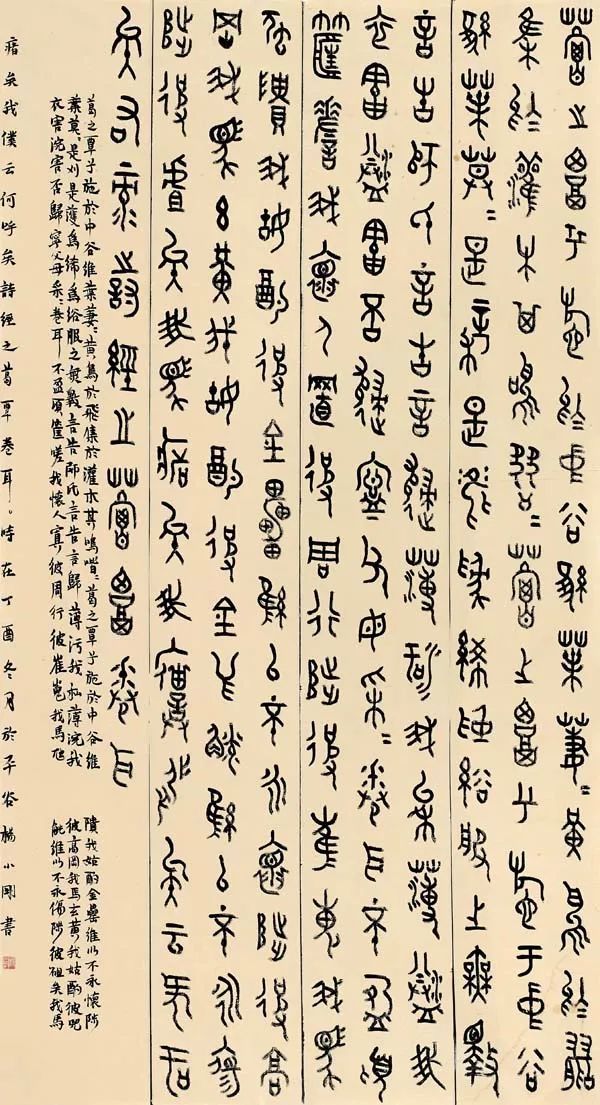 葛之覃兮施於中谷維葉萋=黄鳥於飛
集於灌木其鳴喈=葛之覃兮施于中谷
維葉莫=是刈是濩爲絺爲綌服之無斁
言告師氏言告言歸薄污我私薄浣我
衣害浣害否歸寧父母采=卷耳不盈頃
筐嗟我懷人寘彼周行陟彼崔嵬我馬
虺隤我姑酌彼金罍維以不永懷陟彼高
岡我馬玄黄我姑酌彼兕觥維以不永傷
陟彼砠矣我馬瘏矣我僕痡矣云
矣詩經之葛覃卷耳
葛之覃兮施於中谷維葉萋=黄鳥於飛集於灌木其鳴喈=葛之覃兮施於中谷維
葉莫=是刈是濩爲絺爲綌服之無斁言告師氏言告言歸薄污我私薄浣我
衣害浣害否歸寧父母采=卷耳不盈頃筐嗟我懷人寘彼周行彼崔嵬我馬虺
隤我姑酌金罍維以不永懷陟
彼高岡我馬玄黄我姑酌彼兕
觥維以不永傷陟彼砠矣我馬
瘏矣我僕云何吁矣詩經之葛覃卷耳。時在丁酉冬月於平谷楊小剛書